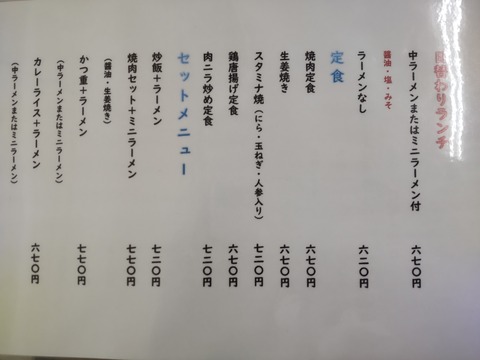 日替わりランチ
中ラーメンまたはミニラーメン付 六七〇円
醤油・塩・みそ
ラーメンなし 六二〇円
定食
焼肉定食 六七〇円
生姜焼き 六七〇円
スタミナ焼（にら・玉ねぎ・人参入り） 七二〇円
鶏唐揚げ定食 六七〇円
肉ニラ炒め定食 七二〇円
セットメニュー
炒飯＋ラーメン 七二〇円
焼肉セット＋ミニラーメン 七七〇円
（醤油・生姜焼き）
かつ重＋ラーメン 七七〇円
（中ラーメンまたはミニラーメン）
カレーライス＋ラーメン 六七〇円
（中ラーメンまたはミニラーメン）